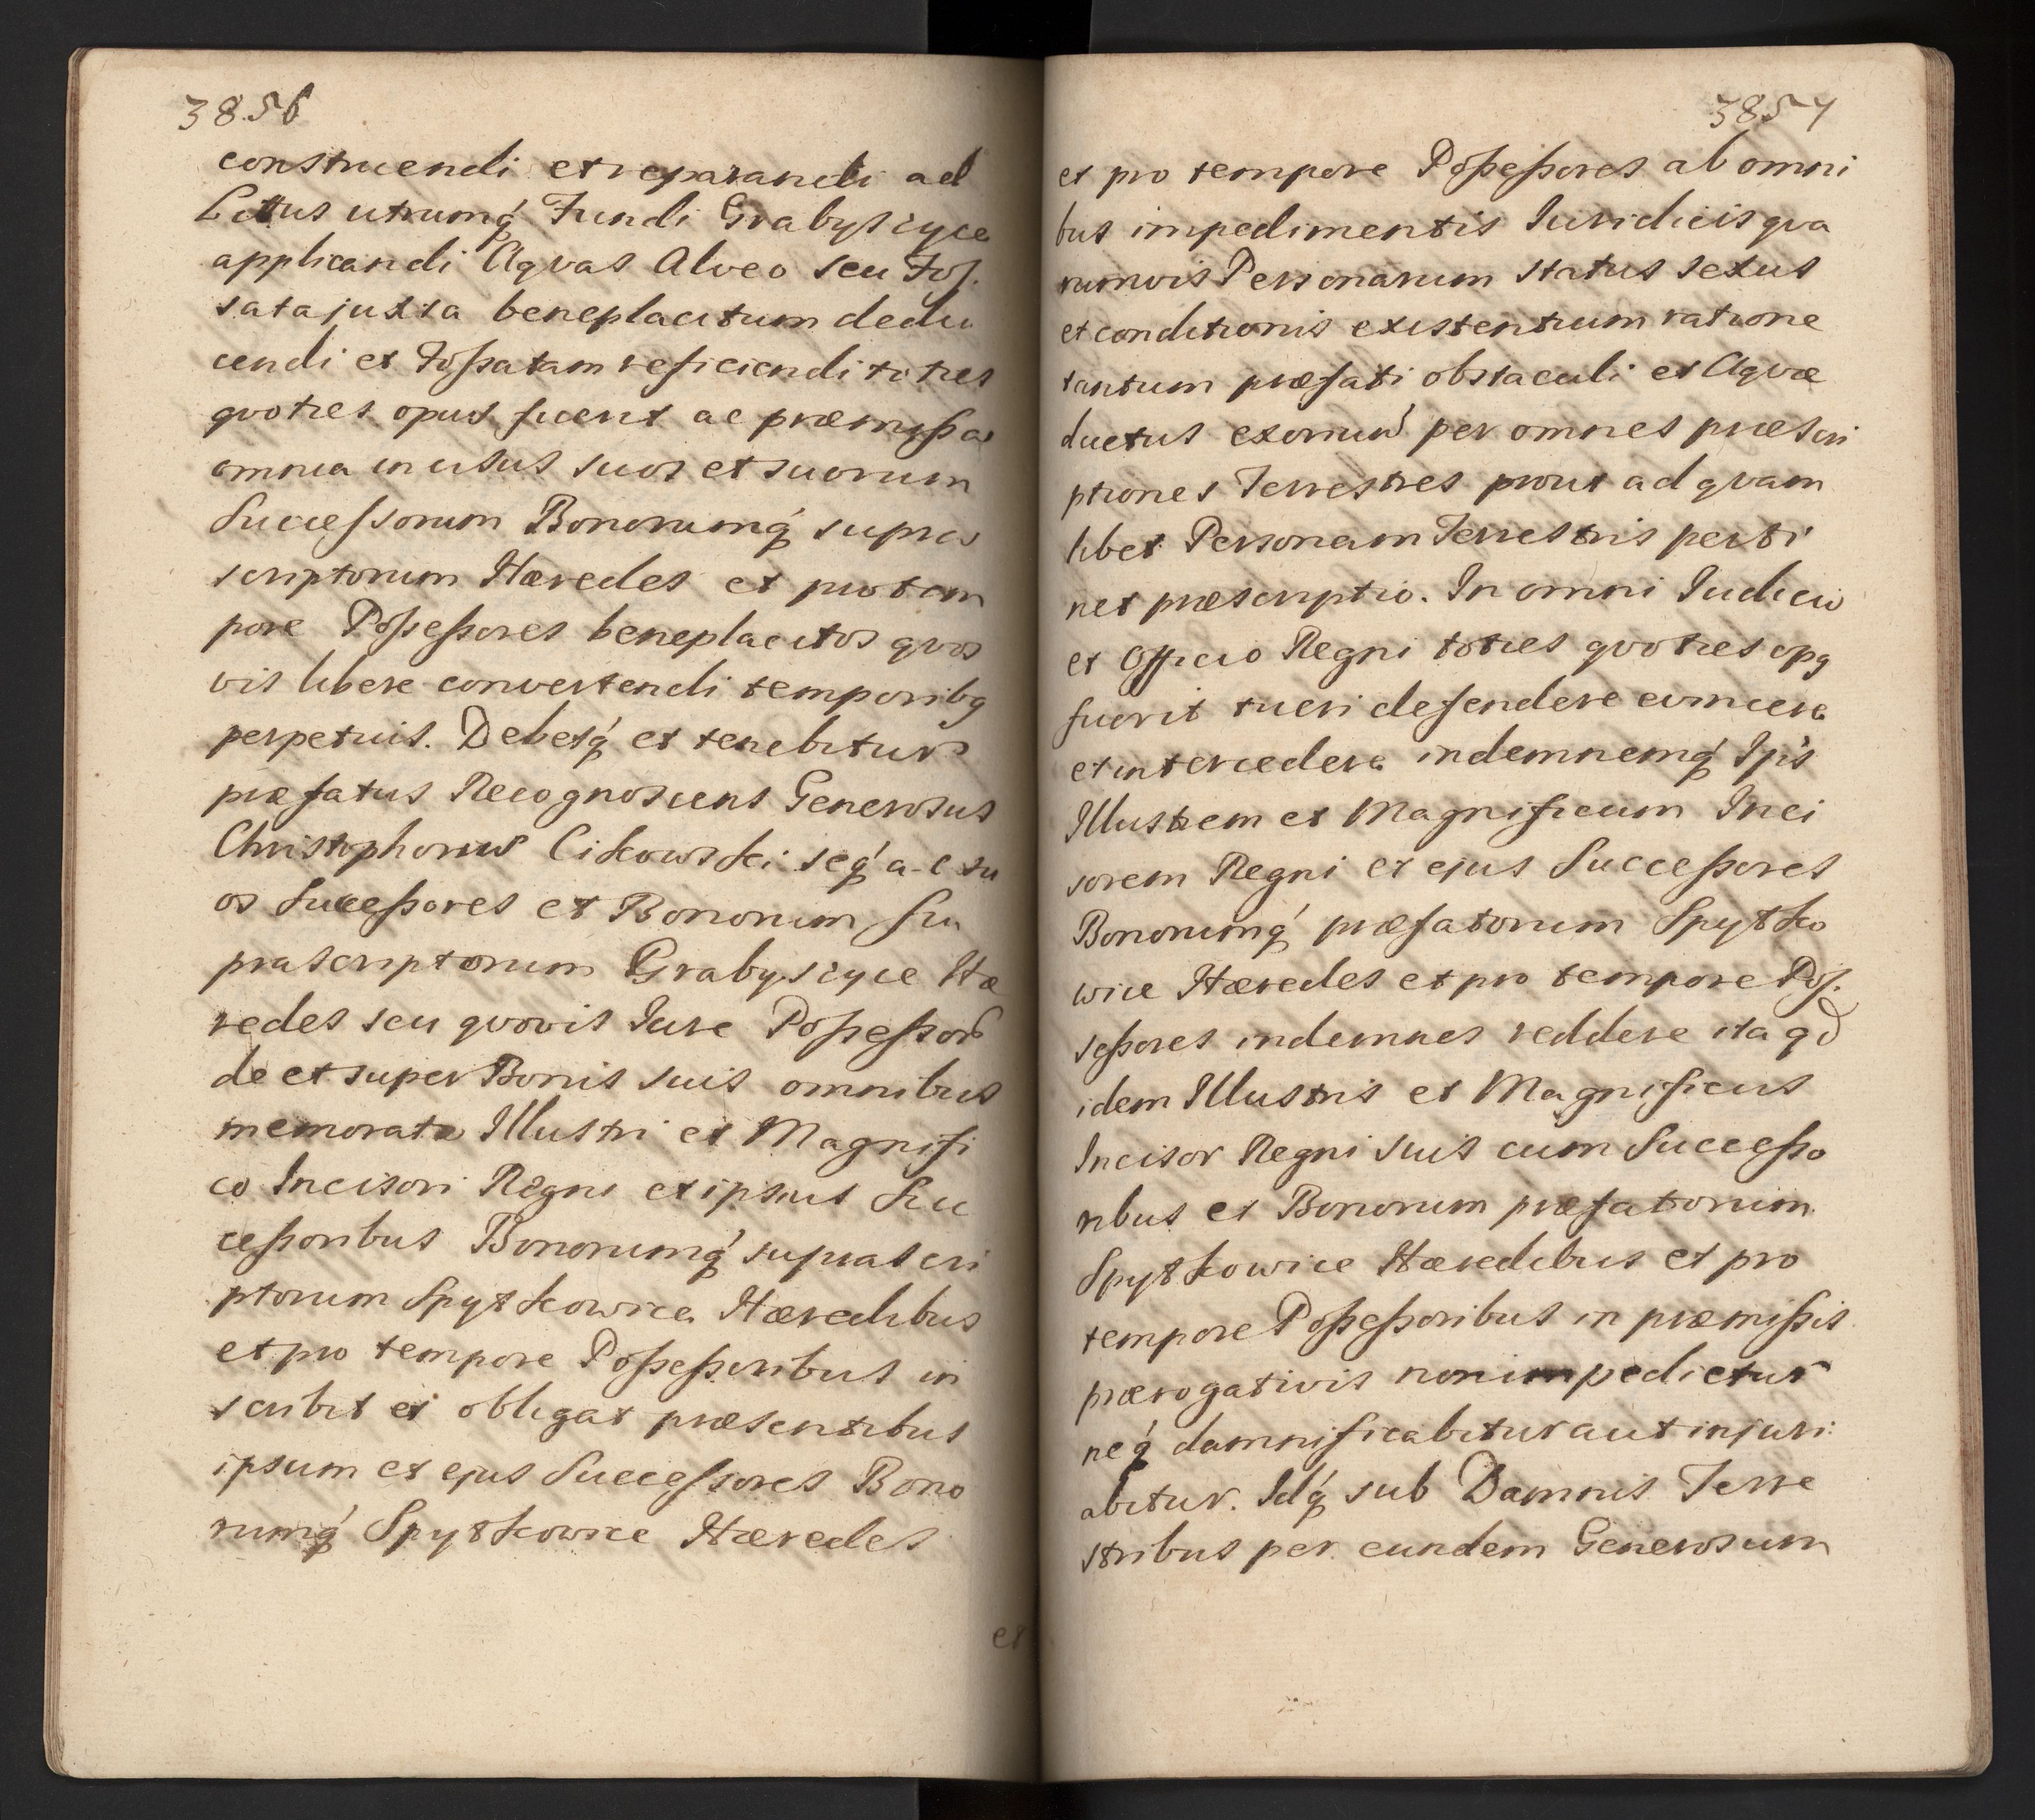 3856
construendi et reparandi ad
Littus utrumq́ Fundi Grabyszyce
applicandi Aqvas Alveo seu Fos.
sata juxta beneplacitum dedu
cendi et Foſsatam reficiendi toties
qvoties opus fuerit ac præmiſsa
omnia in usus suos et suorum
Succeſsorum Bonorumq́ supra
scriptorum Hæredes et protem
pore Poſseſsores beneplacitos qvos
vis libere convertendi temporibq
perpetuis. Debetq́ et tenebitur
præfatus Recognoscens Generosus
Christophorus Cikowski seq́ a-c su
os Succeſsores et Bonorum Su
prascriptorum Grabyszyce Hæ
redes seu qvovis Iure Poſseſsor
de et super Bonis suis omnibus
memorato Illustri et Magnifi
co Incisori Regni et ipsius Suc
ceſsoribus Bonorumq́ suprascri
ptorum Spytkowice Hæredibus
et pro tempore Poſseſsoribus in
scribit et obligat præsentibus
ipsum et ejus Succeſsores Bono
rumq́ Spytkowice Hæredes
et
3857
et pro tempore Poſseſsores ab omni
bus impedimentis Iuridicis qva
rumvis Personarum status sexus
et conditionis existentium ratione
tantum præfati obstaculi et Aqvæ
ductus exorium per omnes præscri
ptiones Terrestres prout ad qvam
libet Personam Terrestris perti
net præscriptio. In omni Iudicio
et Officio Regni toties qvoties opq
fuerit tueri defendere evincere
et intercedere indemnemq́ Ips
Illustrem et Magnificum Inci
sorem Regni et ejus Succeſsores
Bonorumq́ præfatorum Spytko
wice Hæredes et pro tempore Pos.
seſsores indemnes reddere ita qd
idem Illustris et Magnificus
Incisor Regni suis cum Succeſso
ribus et Bonorum præfatorum
Spytkowice Hæredibus et pro
tempore Poſseſsoribus in præmiſsis
prærogativis non impedietur
neq́ damnificabitur aut injuri:
abitur. Idq́ sub Damnis Terre
stribus per eundem Generosum